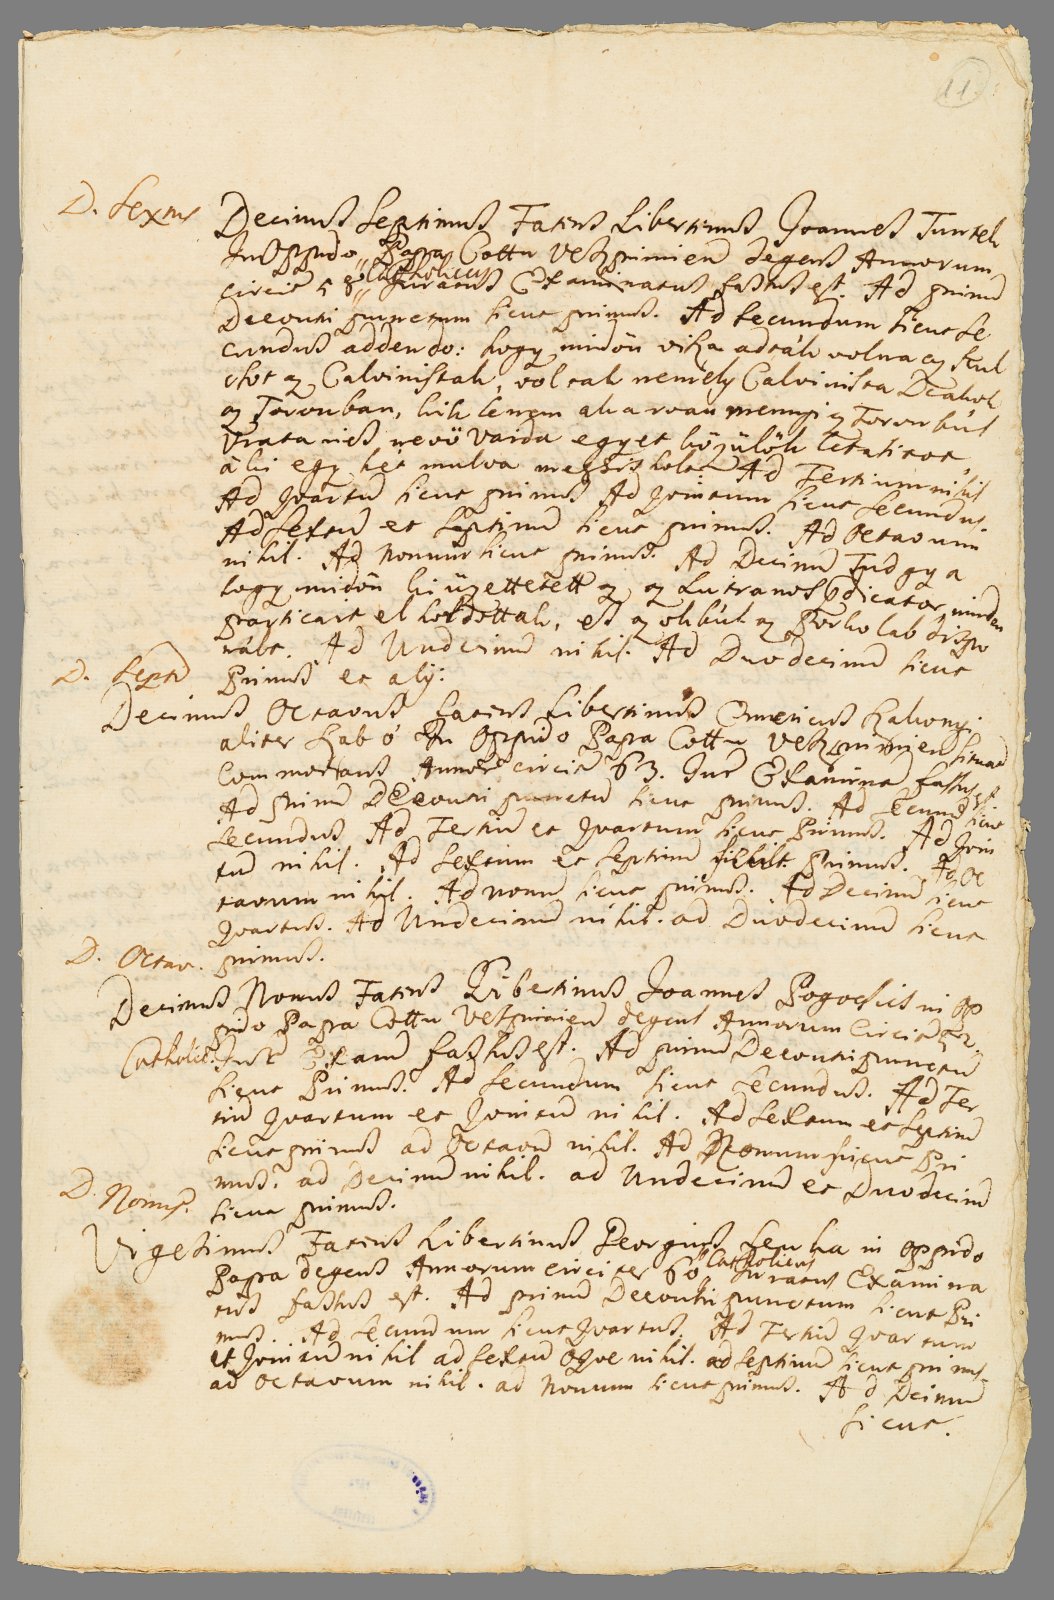 11
D. Sextus
Decimus Septimus Fatens Libertinus Joannes Tuntek
In Oppido Papa Cottu Veszprimien degens Annorum
circit 58 Catholicus Juratus Examinatus fassus est. Ad primu
Deeoutri punctum sicut primus. Ad secundum sicut se
cundus addendo: hogy midön viszsza adták volna az kul
chot az Calvinisták, voltak nemely Calvinista Deakok
az Toronban, kik le nem akarván menni az Torombúl
Vratanies nevö Vaida egyet közülök le taszitot
á ki egy hét mulva megis holt Ad Tertium nihil
Ad Quartu sicut primus Ad Quintum sicut secundus.
Ad Sextu et Septimu sicut primus. Ad Octavum
nihil. Ad Nonum sicut primus. Ad Decimu Tudgya
hogy midön ki üzettetett az az Lutranos Pdicator, minden
partieait el hordották, es az okbúl az
nába. Ad Undecimu nihil. Ad Duodecimu sicut
D. Septi
Primus et alij:
Decimus Octavus Fatens Libertinus Emericus
aliter Szabó In Oppido Papa Cottu Veszprimien
Commorans Annor circit 63. Jur Examina fassus est.
Ad primu Deeoutri punctu sicut primus. Ad Secundu sicut
Secundus Ad Tertiu et Quartum sicut Primus. Ad Quin
tu nihil. Ad Sextum et Septimu sicut primus. Ad Oc
tavum nihil. Ad nonu sicut primus. Ad Decimu sicut
Quartus. Ad Undecimu nihil. ad Duodecimu sicut
D. Octav. primus.
Decimus Nonus Fatens Libertinus Joannes in Op
pido Papa Cottu Veszprimien degens Annorum Circit
Catholic. Jur Exam fassus est. Ad primu Deeoutri punctu
sicut Primus. Ad Secundum sicut Secundus. Ad Ter
tiu Quartum et Quintu nihil. Ad Sextum et Septimu
sicut primus ad Octavu nihil. Ad Nonum sicut Pri
mus. ad Decimu nihil. ad Undecimu et Duodecimu
D. Nonus.
sicut primus.
Vigesimus Fatens Libertinus Georgius in oppido
Papa degens Annorum circiter 60 Catholicus Juratus Examina
tus fassus est. Ad primu Deeoutri punctum sicut Pri
mus. Ad Secundum sicut Quartus. Ad Tertiu Quartum
et Quintu nihil ad Sextu nihil. ad septimu sicut primus.
ad Octavum nihil. ad Nonum sicut primus. Ad Decimu
sicut.